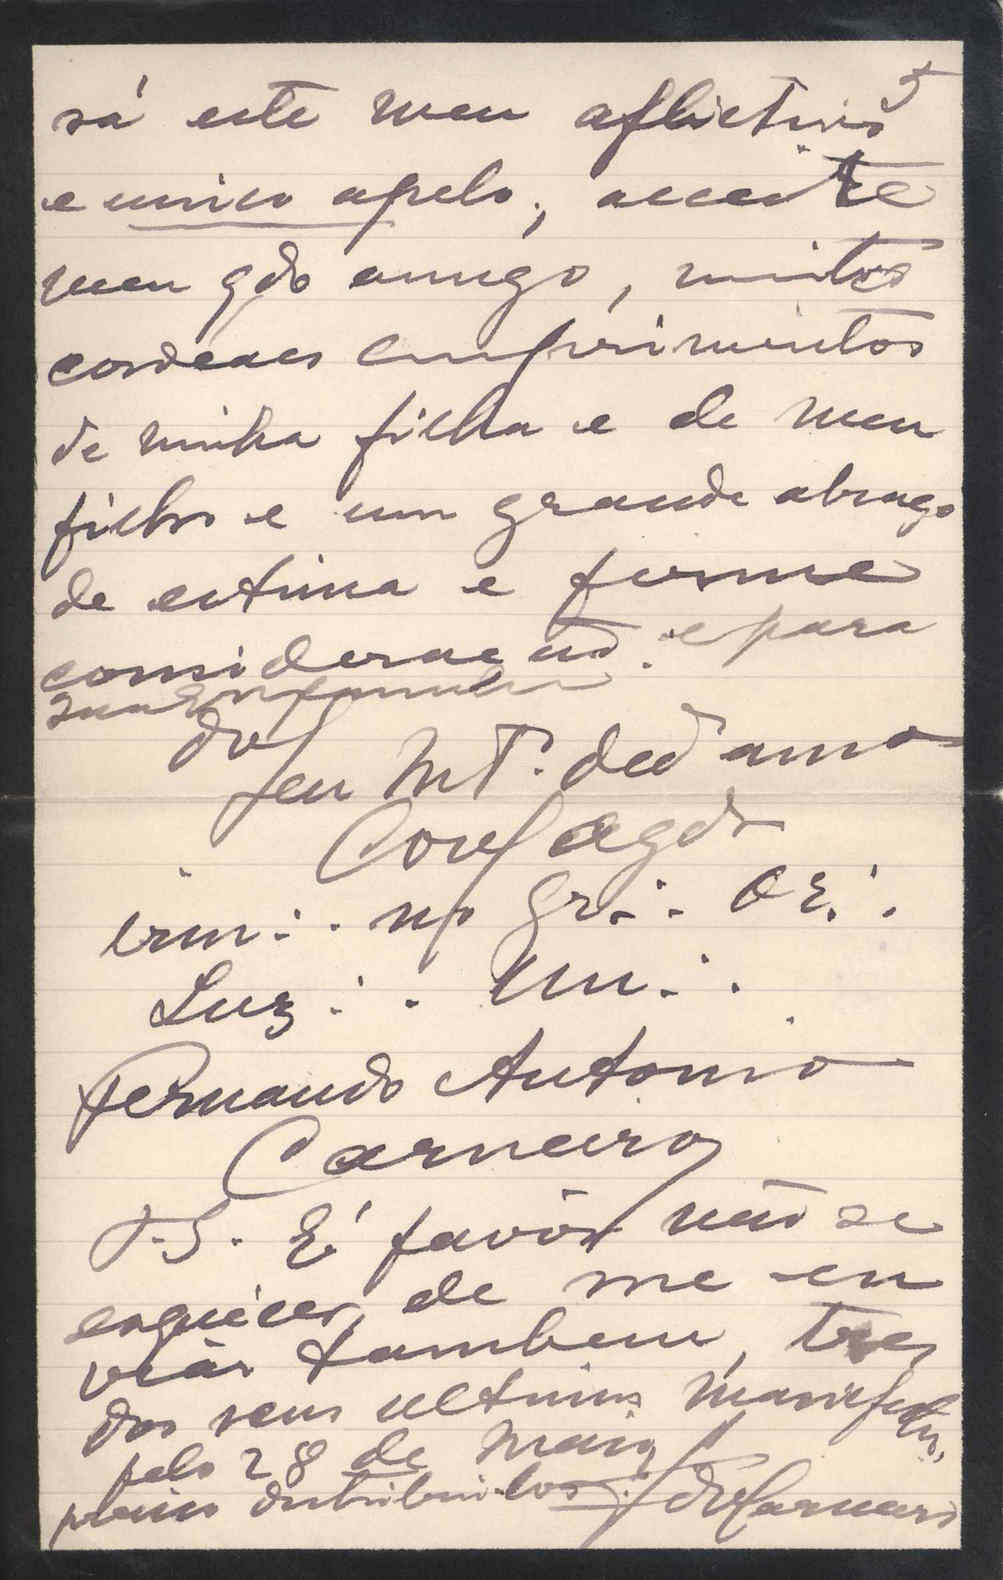 5
sá este meu aflictivo
e unico apelo, acceite
meu qdo amigo, muitos
cordeaes cumprimentos
de minha filha e de meu
filho e um grande abraço
de estima e firme
consideração. e para
sua Exma familia
do
seu Mt. ded amo
Conf agdo
irm∴ no Gr∴ Or∴
Luz∴ Un∴
Fernando Antonio
Carneiro
P.S. É favôr não se
esquecer, de me en
viár tambem, tres
dos seus ultimos manifestos,
pelo 28 de Maio
distribuidos.
Carneiro